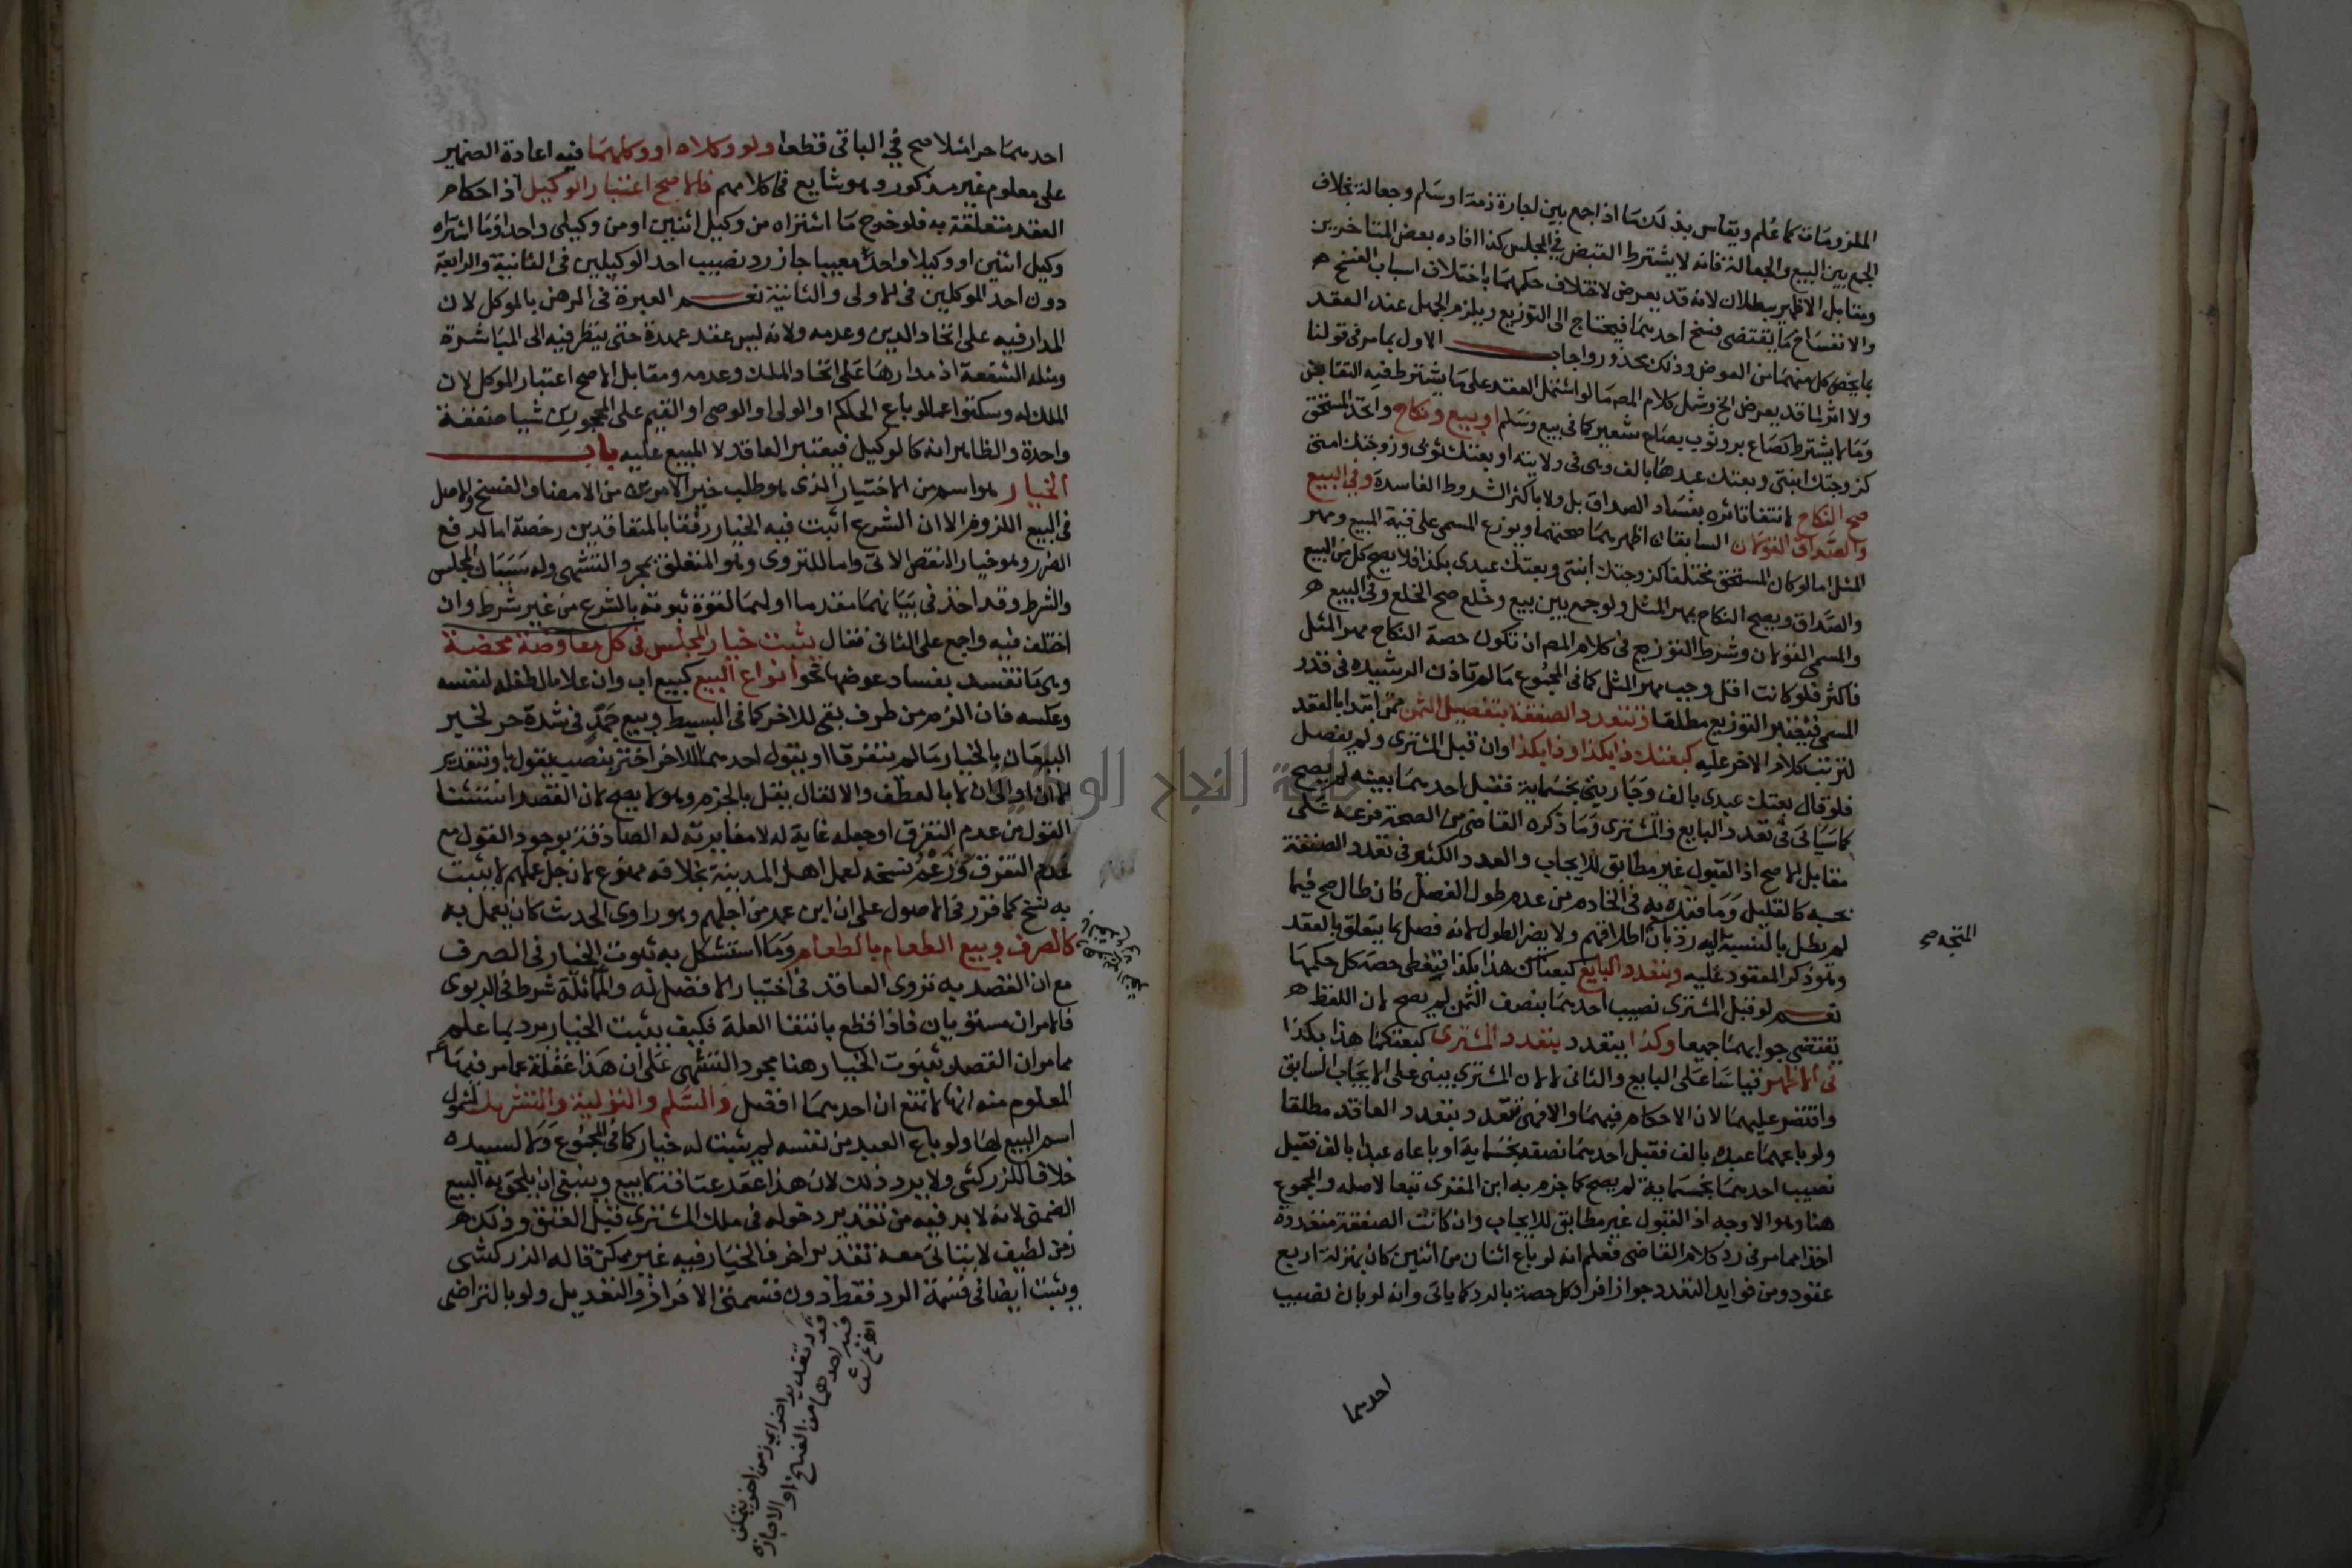 الملزومات كما علم ويقاس بذلك ما اذا جمع بين اجارة ذمة او سلم وجعالة بخلاف
الجمع بين البيع والجعالة فانه لا يشترط القبض في المجلس كذا افاده بعض المتاخرين
ومقابل الاظهر بطلان لانه قد يعرض لاختلاف حكمهما باختلاف اسباب الفسخ ه
والانفساخ ما يقتضى فسخ احدهما فيحتاج الى التوزيع ويلزم الجهل عند العقد
بما يخص كل منهما من العوض وذلك محذور واجاب الاول بما مر فى قولنا
ولا اثر لما قد يعرض الخ وشمل كلام المص ما لو اشتمل العقد على ما يشترط فيه التقابض
وما لا يشترط كصاع بر وثوب بصاع شعير كما فى بيع وسلم او بيع ونكاح واتحد المستحق
كزوجتك ابنتى وبعتك عبدها بالف وهى فى ولايته او بعتك ثوبى وزوجتك امتى
صح النكاح لانتفا تاثره بفساد الصداق بل ولا باكثر الشروط الفاسدة وفى البيع
والصداق القولان السابقان اظهرهما صحتهما ويوزع المسمى على قيمة المبيع ومهر
المثل اما لو كان المستحق مختلفا كزوجتك ابنتى وبعتك عبدى بكذا فلا يصح كل من البيع
والصداق ويصح النكاح بمهر المثل ولو جمع بين بيع وخلع صح الخلع وفى البيع ه
والمسمى القولان وشرط التوزيع فى كلام المص ان تكون حصة النكاح مهر المثل
فاكثر فلو كانت اقل وجب مهر المثل كما فى المجموع ما لم تاذن الرشيده فى قدر
المسمى فيعتبر التوزيع مطلقا وتتعدد الصفقة بتفصيل الثمن ممن ابتدا بالعقد
لترتب كلام الاخر عليه كبعتك ذا بكذا وذا بكذا وان قبل المشترى ولم يفصل
فلو قال بعتك عبدى بالف وجاريتى بخسماية فقبل احدهما بعينه لم يصح
كما سياتى فى تعدد البايع والمشترى وما ذكره القاضى من الصحة فرعه على
مقابل الاصح اذ القبول غير مطابق للايجاب والعدد الكثير فى تعدد الصفقة
بحسبه كالقليل وما قيد به فى الخادم من عدم طول الفصل فان طال صح فيما
لم يطل بالنسبة اليه رد بان اطلاقهم ولا يضر الطول لانه فصل بما يتعلق بالعقد
وهو ذكر المعقود عليه وبتعدد البايع كبعناك هذا بكذا فتعطى حصة كل حكمها
نعم لو قبل المشترى نصيب احدهما بنصف الثمن لم يصح لان اللفظ ه
يقتضى جوابهما جميعا وكذا يتعدد بتعدد المشترى كبعتكما هذا بكذا
فى الاظهر قياسا على البايع والثانى لا لان المشترى يبنى على الايجاب السابق
واقتصر عليهما لان الاحكام فيهما والا فهى تتعدد بتعدد العاقد مطلقا
ولو باعهما عبده بالف فقبل احدهما نصفه بخسماية او باعاه عبدا بالف فقبل
نصيب احدهما بخسماية لم يصح كما جزم به ابن المقرى تبعا لاصله والمجموع
هنا وهو الاوجه اذ القبول غير مطابق للايجاب وان كانت الصفقة متعددة
اخذا مما مر فى رد كلام القاضى فعلم انه لو باع اثنان من اثنين كان بمنزلة اربع
عقود ومن فوايد التعدد جواز افراد كل حصة بالرد كما ياتى وانه لو بان نصيب
المتجه صح
احدهما
احدهما حرا مثلا صح فى الباقى قطعا ولو وكلاه او وكلهما فيه اعادة الضمير
على معلوم غير مذكور وهو شايع فى كلامهم فالاصح اعتبار الوكيل اذ احكام
العقد متعلقة به فلو خرج ما اشتراه من وكيل اثنين او من وكيلى واحد او ما اشتراه
وكيل اثنين او وكيلا واحد معيبا جاز رد نصيب احد الوكيلين فى الثانية والرابعة
دون احد الموكلين فى الاولى والثانية نعم العبرة فى الرهن بالموكل لان
المدار فيه على اتحاد الدين وعدمه ولانه ليس عقد عهدة حتى ينظر فيه الى المباشرة
ومثله الشفعة اذ مدارها على اتحاد الملك وعدمه ومقابل الاصح اعتبار الموكل لان
الملك له وسكتوا عما لو باع الحاكم او الولى او الوصى او القيم على المحجورين شيا صفقة
واحدة والظاهر انه كالوكيل فيعتبر العاقد لا المبيع عليه باب
الخيار هو اسم من الاختيار الذى هو طلب خير الامرين من الامضا والفسخ والاصل
فى البيع اللزوم الا ان الشرع اثبت فيه الخيار رفقا بالمتعاقدين رخصة اما لدفع
الضرر وهو خيار النقص الاتى واما للتروى وهو المتعلق بمجرد التشهى وله سببان المجلس
والشرط وقد اخذ فى بيانهما مقدما اولهما لقوة ثبوته بالشرع من غير شرط وان
اختلف فيه واجمع على الثانى فقال يثبت خيار المجلس فى كل معاوضة محضة
وهى ما تفسد بفساد عوضها نحو انواع البيع كبيع اب وان علا مال طفله لنفسه
وعكسه فان الزم من طرف بقى للاخر كما فى البسيط وبيع جمد فى شدة حر لخبر
البيعان بالخيار ما لم يتفرقا او يقول احدهما للاخر اختر بنصب يقول باو وتقدير
الا ان او الى ان لا بالعطف والا لقال يقل بالجزم وهو لا يصح لان القصد استثنا
القول من عدم التفرق او جعله غاية له لا مغايرته له الصادقة بوجود القول مع
عدم التفرق وزعم نسخه لعمل اهل المدينة بخلافه ممنوع لان جل عملهم لا يثبت
به نسخ كما قرر فى الاصول على ان ابن عمر من اجلهم وهو راوى الحديث كان يعمل به
كالصرف وبيع الطعام بالطعام وما استشكل به ثبوت الخيار فى الصرف
مع ان القصد به تروى العاقد فى اختيار الافضل له والمماثلة شرط فى الربوى
فالامران مستويان فاذا قطع بانتفا العلة فكيف يثبت الخيار يرد بما علم
مما مر ان القصد بثبوت الخيار هنا مجرد التشهى على ان هذا غفلة عما مر فيها
المعلوم منه انها لا تمنع ان احدهما افضل والسلم والتولية والتشريك لشمول
اسم البيع لها ولو باع العبد من نفسه لم يثبت له خيار كما فى المجموع ولا لسيده
خلافا للزركشى ولا يرد ذلك لان هذا عقد عتاقة كبيع وينبغى ان يلحق به البيع
الضمنى لانه لا بد فيه من تقدير دخوله فى ملك المشترى قبل العتق وذلك ه
زمن لطيف لا يتاتى معه تقدير اخر فالخيار فيه غير ممكن قاله الزركشى
ويثبت ايضا فى قسمة الرد فقط دون قسمتى الافراز والتعديل ولو بالتراضى
تقدير اخر اى زمن اخر يتمكن
فيه احدهما من الفسخ او الاجازة
اه ع ش